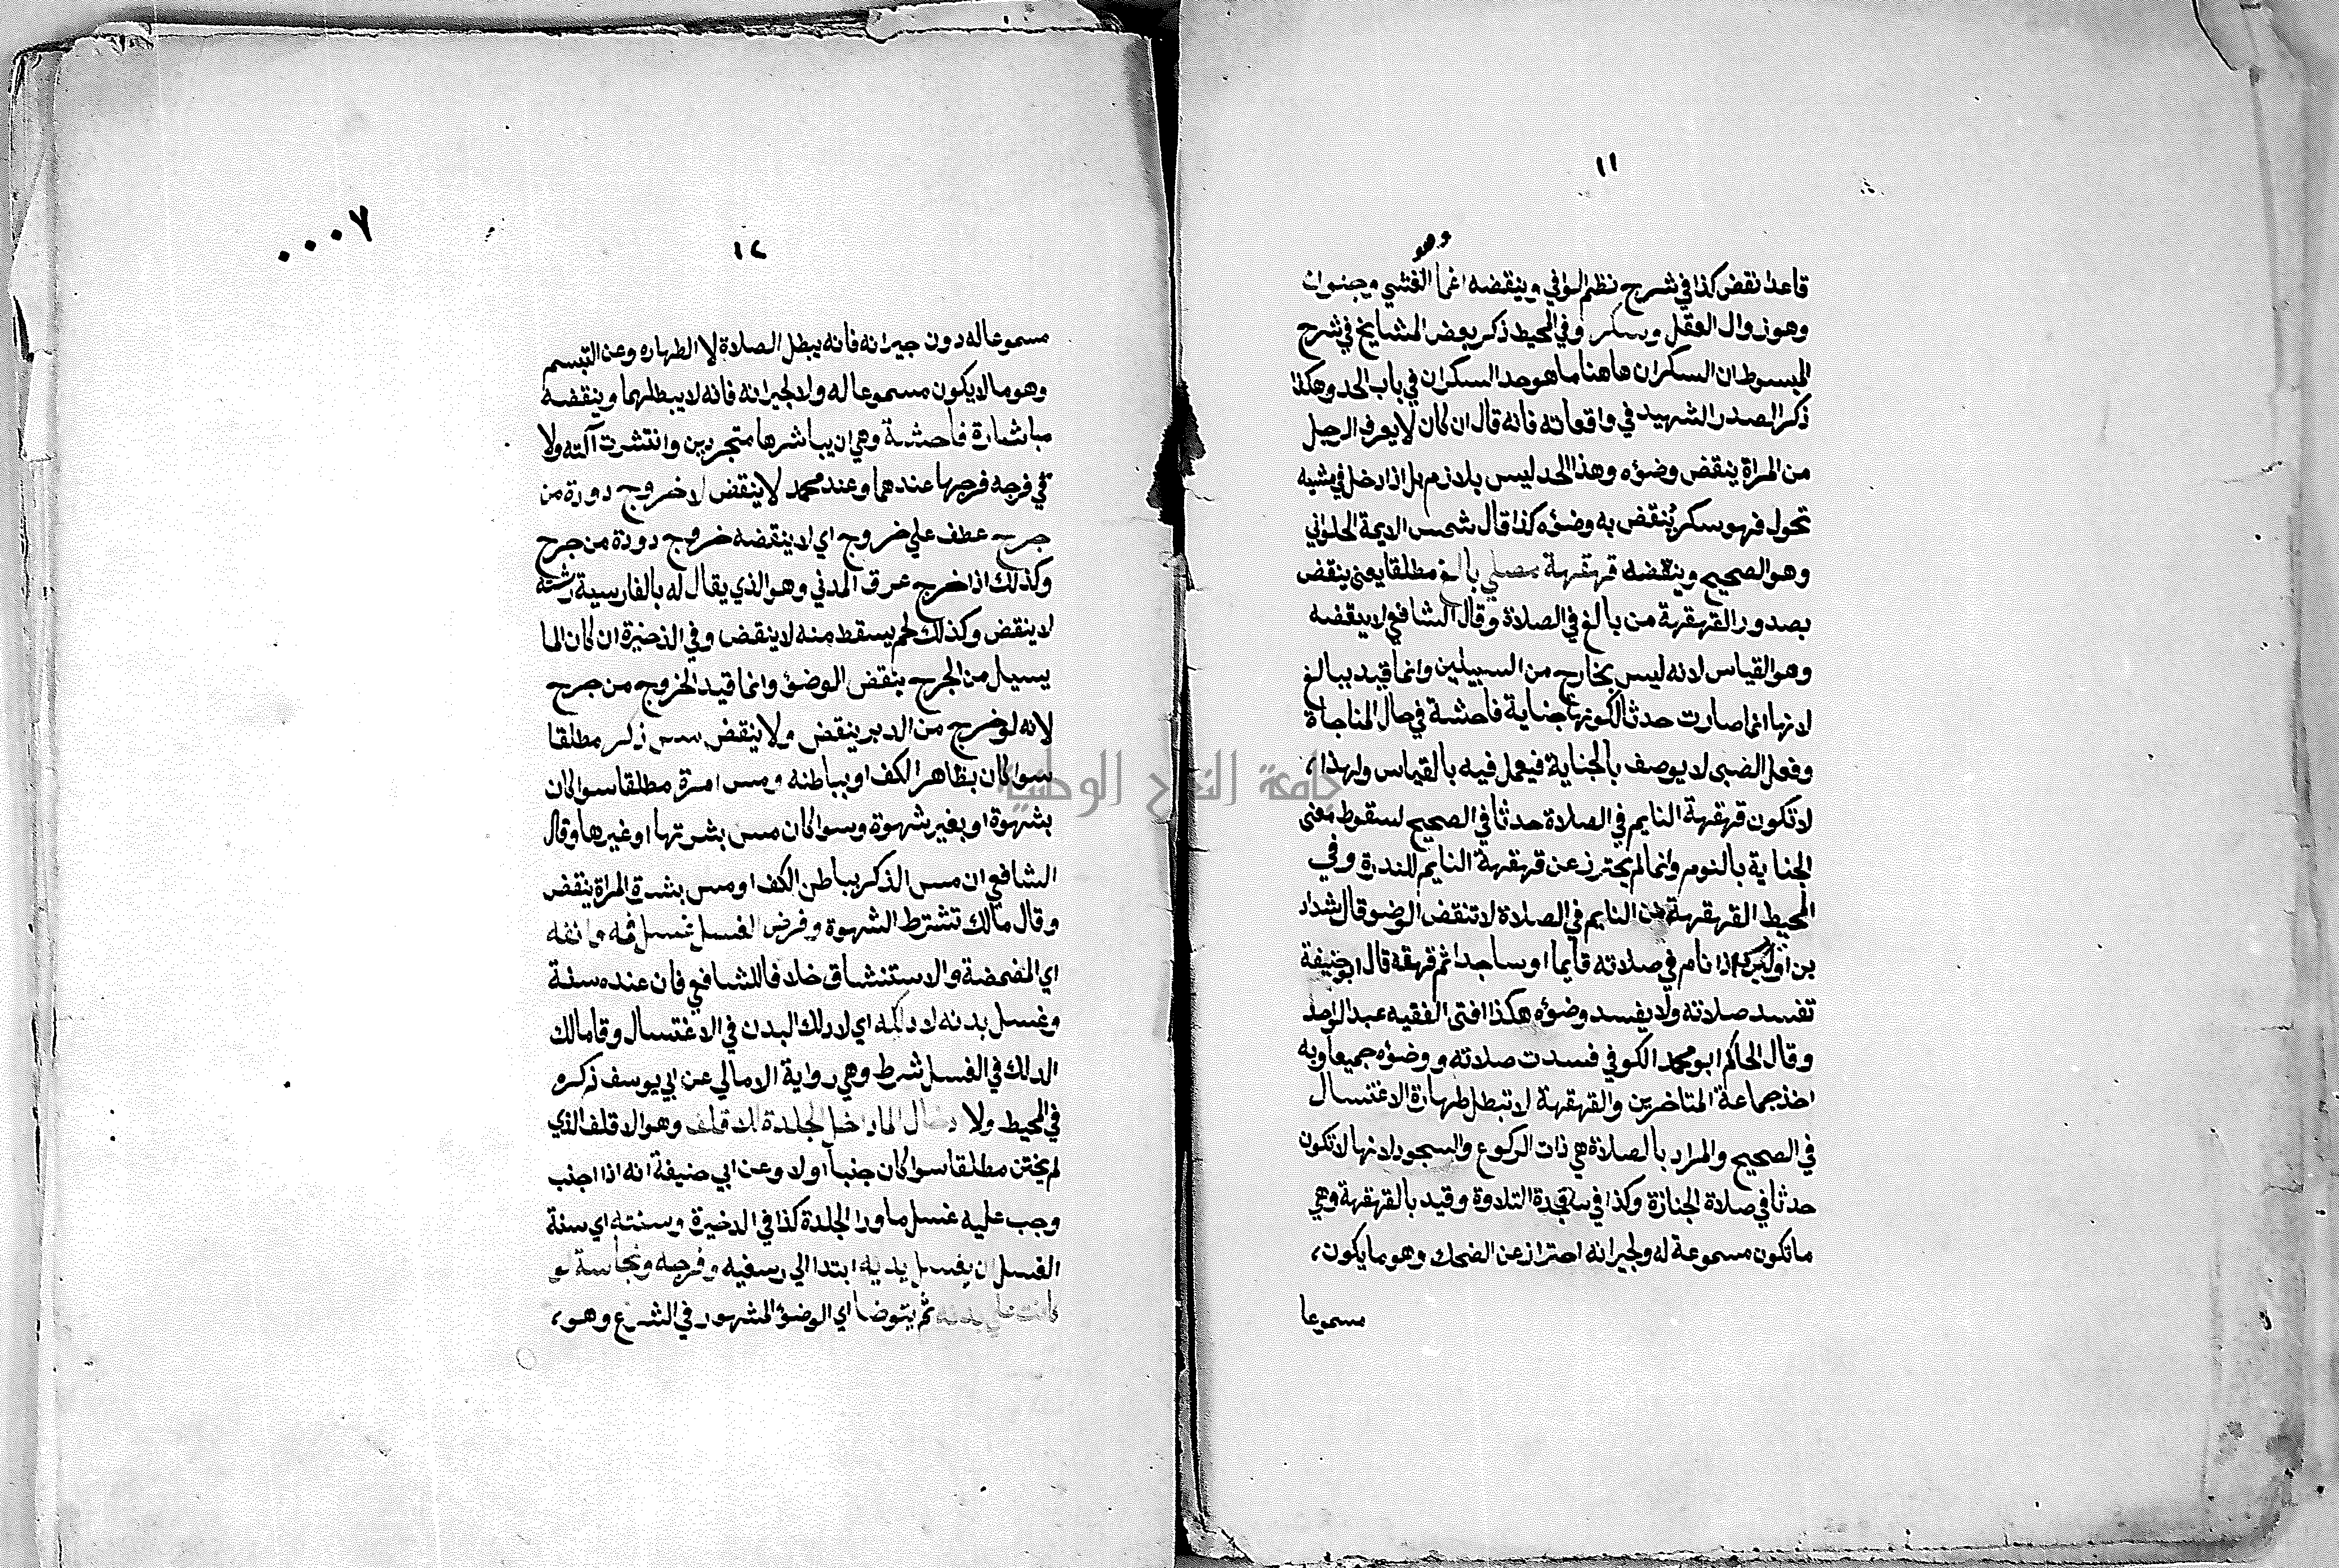 ١١
وهو
قاعدا نقض كذا في شرح نظم الوافي وينقضه اغما الغشي وجنون
وهو زوال العقل وسكر وفي المحيط ذكر بعض المشايخ في شرح
المبسوط ان السكران هاهنا ما هو حد السكران في باب الحد وهكذا
ذكر الصدر الشهيد في واقعاته فانه قال ان كان لا يعرف الرجل
من المراة ينقض وضؤه وهذا الحد ليس بلازم بل اذا دخل في مشيه
تحول فهو سكر ينقض به وضؤه كذا قال شمس الايمة الحلواني
وهو الصحيح وينقضه قهقهة مصلي بالغ مطلقا يعني ينقض
بصدور القهقهة من بالغ في الصلاة وقال الشافعي لا ينقضه
وهو القياس لانه ليس بخارج من السبيلين وانما قيد ببالغ
لانها انما صارت حدثا لكونها جناية فاحشة في حال المناجاة
وفعل الصبي لا يوصف بالجناية فيعمل فيه بالقياس ولهذا،
لا تكون قهقهة النايم في الصلاة حدثا في الصحيح لسقوط معنى
الجناية بالنوم وانما لم يحترز عن قهقهة النايم للندرة وفي
المحيط القهقهة من النايم في الصلاة لا تنقض الوضو قال شداد
بن اذا نام في صلاته قايما او ساجدا ثم قهقة قال ابو حنيفة
تفسد صلاته ولا يفسد وضؤه هكذا افتى الفقيه عبد الواحد
وقال الحاكم ابو محمد الكوفي فسدت صلاته ووضؤه جميعا وبه
اخذ جماعة المتاخرين والقهقهة لا تبطل طهارة الاغتسال
في الصحيح والمراد بالصلاة هي ذات الركوع والسجود لانها لا تكون
حدثا في صلاة الجنازة وكذا في سجدة التلاوة وقيد بالقهقهة وهي
ما تكون مسموعة له ولجيرانه احتراز عن الضحك وهو ما يكون،
مسموعا
٠٠٠٧
١٢
مسموعا له دون جيرانه فانه يبطل الصلاة لا الطهاره وعن التبسم
وهو مالا يكون مسموعا له ولا لجيرانه فانه لا يبطلهما وينقضه
مباشارة فاحشة وهي ان يباشرها متجردين وانتشرت آلته ولا
في فرجه فرجها عندهما وعند محمد لا ينقض لا خروج دورة من
جرح عطف علي خروج اي لا ينقضه خروج دودة من جرح
وكذلك اذا خرج عرق المدني وهو الذي يقال له بالفارسية رشته
لا ينقض وكذلك لحم يسقط منه لا ينقض وفي الذخيرة ان كان الما
يسيل من الجرح ينقض الوضؤ وانما قيد الخروج من جرح
لانه لو خرج من الدبر ينقض ولا ينقض مس ذكر مطلقا
سوا كان بظاهر الكف او بباطنه ومس امرة مطلقا سوا كان
بشهوة او بغير شهوة وسوا كان مس بشرتها او غيرها وقال
الشافعي ان مس الذكر بباطن الكف او مس بشرة المراة ينقض
وقال مالك تشترط الشهوة وفرض الغسل غسل فمه وانفه
اي المضمضة والاستنشاق خلافا للشافعي فان عنده سنة
وغسل بدنه لا دلكه اي لا دلك البدن في الاغتسال وقا مالك
الدلك في الغسل شرط وهي رواية الامالي عن ابي يوسف ذكره
في المحيط ولا ادخال الما داخل الجلدة للاقلف وهو الاقلف الذي
لم يختن مطلقا سوا كان جنبا او لا وعن ابي حنيفة انه اذا اجنب
وجب عليه غسل ما ورا الجلدة كذا في الدخيرة وسنته اي سنة
الغسل ان يغسل يديه ابتدا الي رسغيه وفرجه ونجاسة لو
كانت علي بدنه ثم يتوضا اي الوضؤ المشهور في الشرع وهو،
جامعة النجاح الوطنية